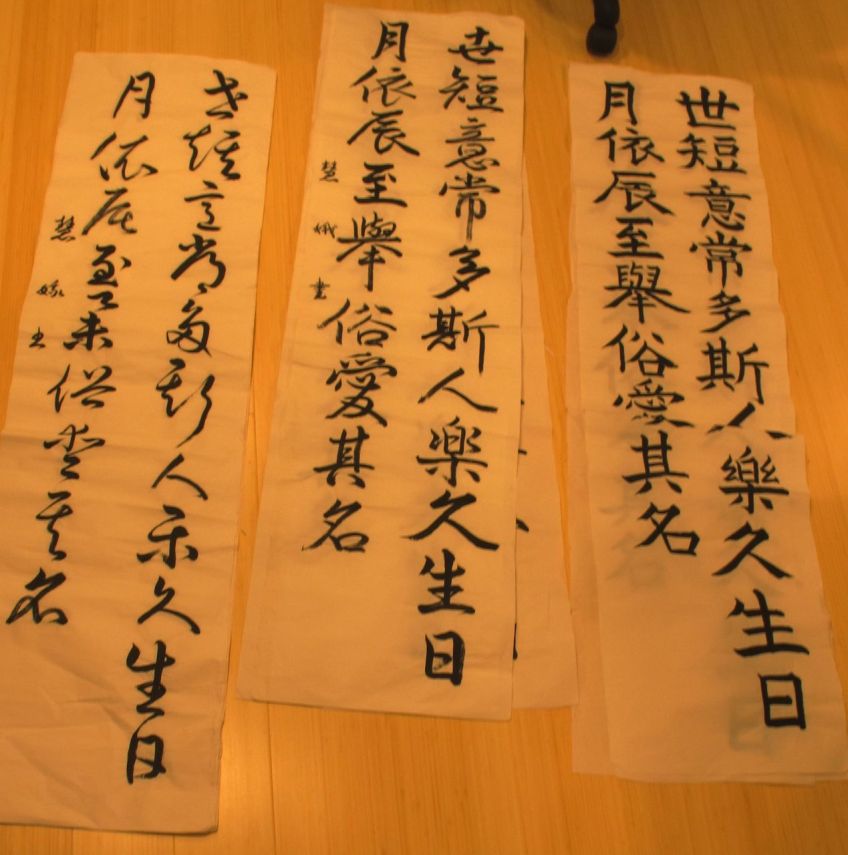 世短意常多斯人樂久生日
月依辰至舉俗愛其名
世短意常多斯人楽久生日
月依辰至舉俗愛其名
慧娥書
世短意常多斯人樂久生日
月依辰至舉俗愛其名
慧娥書